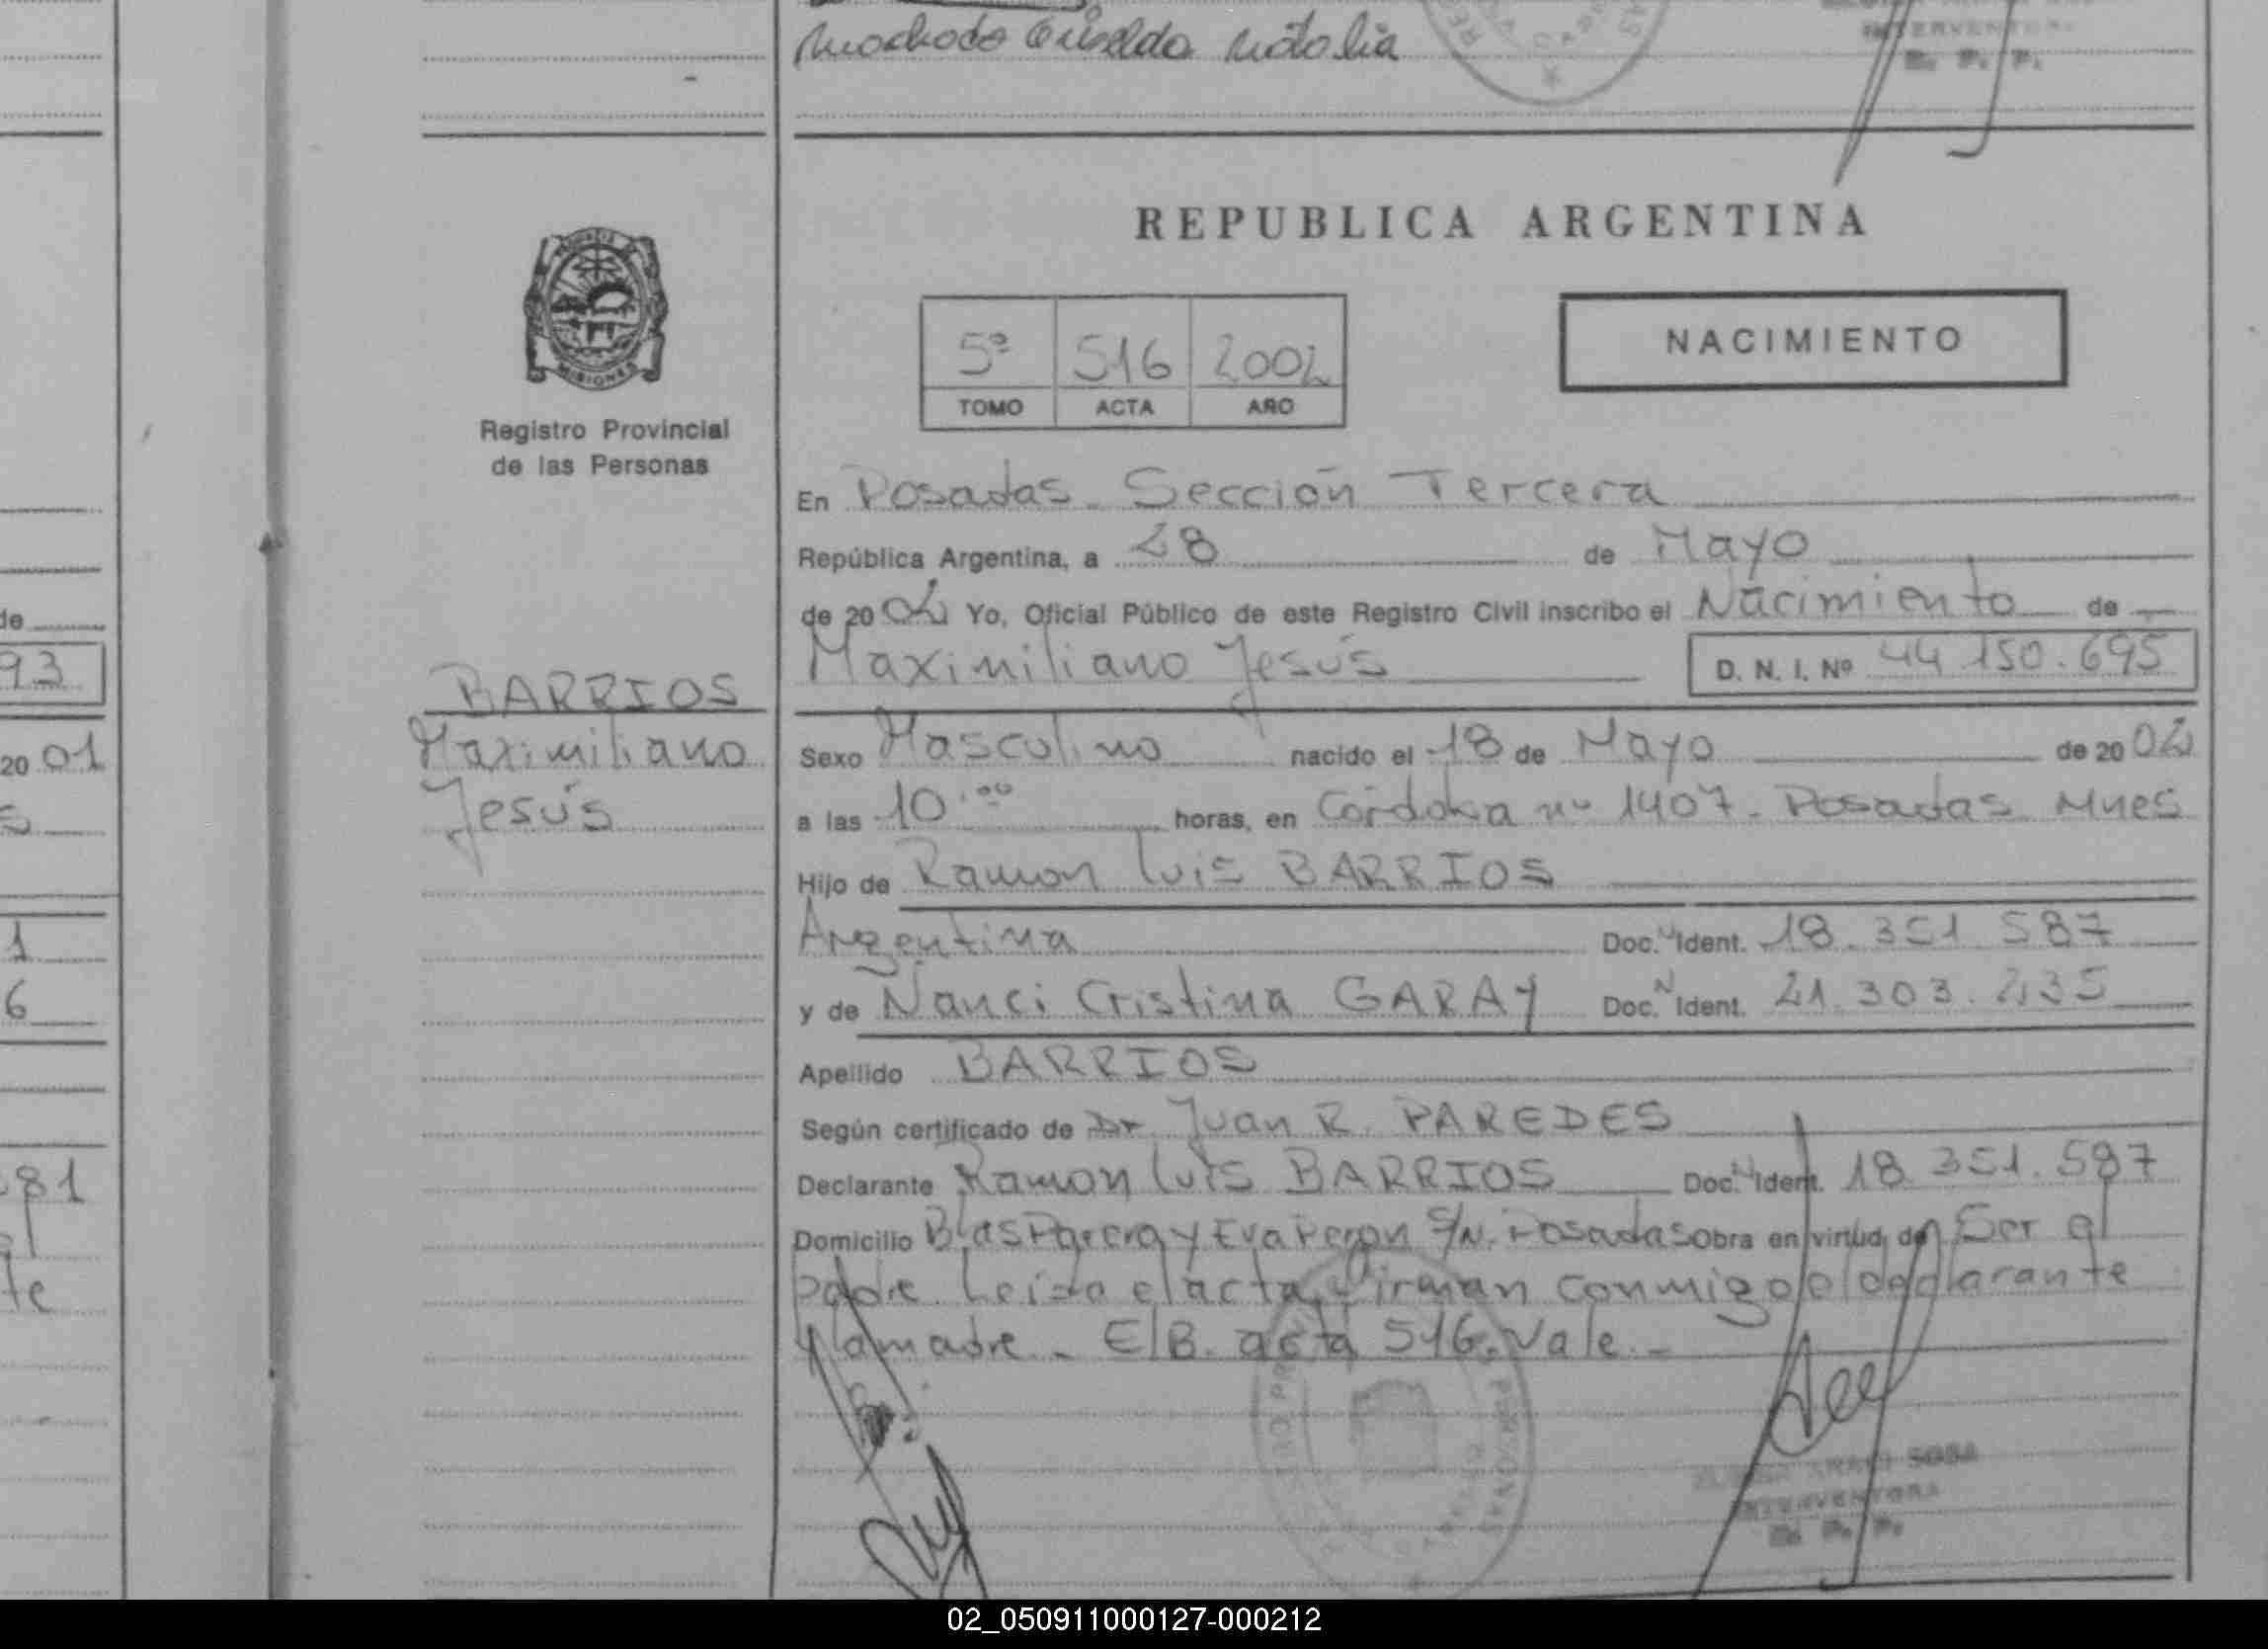 Machado Griselda Natalia
INTERVENTORA
R. P. P.
MISIONES
Registro Provincial
de las Personas
REPUBLICA ARGENTINA
5º 516 2002
TOMO ACTA AÑO
NACIMIENTO
En Posadas - Sección Tercera
República Argentina, a 28 de Mayo
de 2002 Yo, Oficial Público de este Registro Civil inscribo el Nacimiento de
Maximiliano Jesús D. N. I. Nº 44 150.695
BARRIOS
Maximiliano
Jesús
Sexo Masculino nacido el 18 de Mayo de 2002
a las 10,00 horas, en Córdoba nº 1407 - Posadas Mnes
Hijo de Ramon Luis BARRIOS
Argentina Doc. N Ident. 18.351 587
y de Nanci Cristina GARAY Doc. N Ident. 21.303.235
Apellido BARRIOS
Según certificado de Dr Juan R. PAREDES
Declarante Ramon Luis BARRIOS Doc. N Ident. 18.351.587
Domicilio Blas Parera y Eva Peron S/N. Posadas obra en virtud de Ser el
padre. Leída el acta, firman conmigo el declarante
y la madre - E/B. acta 516. Vale. -
SOSA
INTERVENTORA
R. P. P.
93
20 01
1
6
81
te
02_050911000127-000212